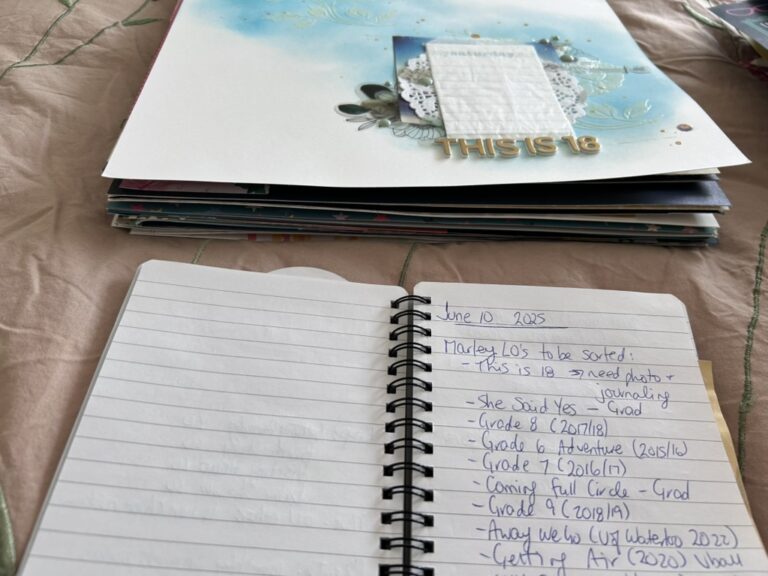 saturday
THIS IS 18
June 10 2025
Marley LO's to be sorted:
- This is 18 → need photo +
journaling
- She Said Yes - Grad
- Grade 8 (2017/18)
- Grade 6 Adventure (2015/16)
- Grade 7 (2016/17)
- Coming Full Circle - Grad
- Grade 9 (2018/19)
- Away we Go (U of Waterloo 2022)
- Getting Air (2020) Vball